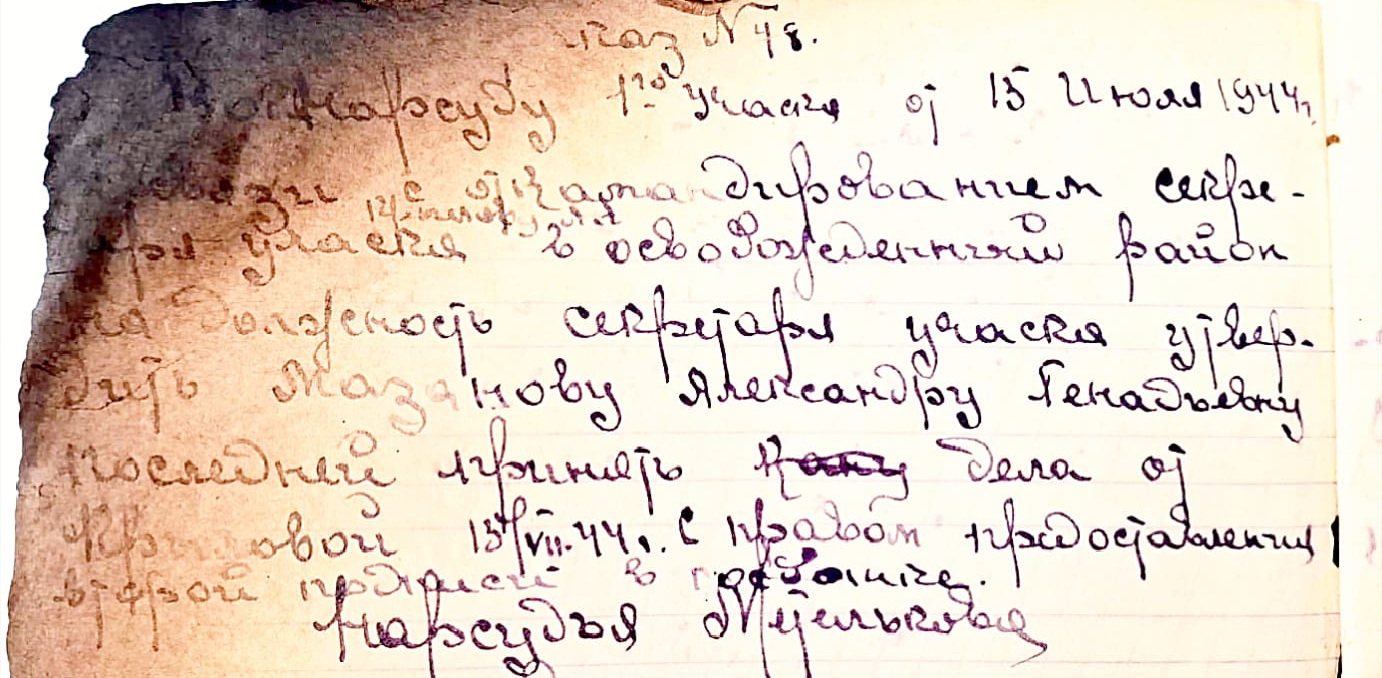 каз N 48.
Нарсуду 1го участка от 15 Июля 1944г.
связи с откамандированием секре-
ря участка в освобожденный район
на должность секретаря участка утвер-
дить Мазанову Александру Генадьевну
последней принять дела от
Крыловой 15/VII.44г. С правом предоставления
второй подписи в госбанке.
Нарсудья